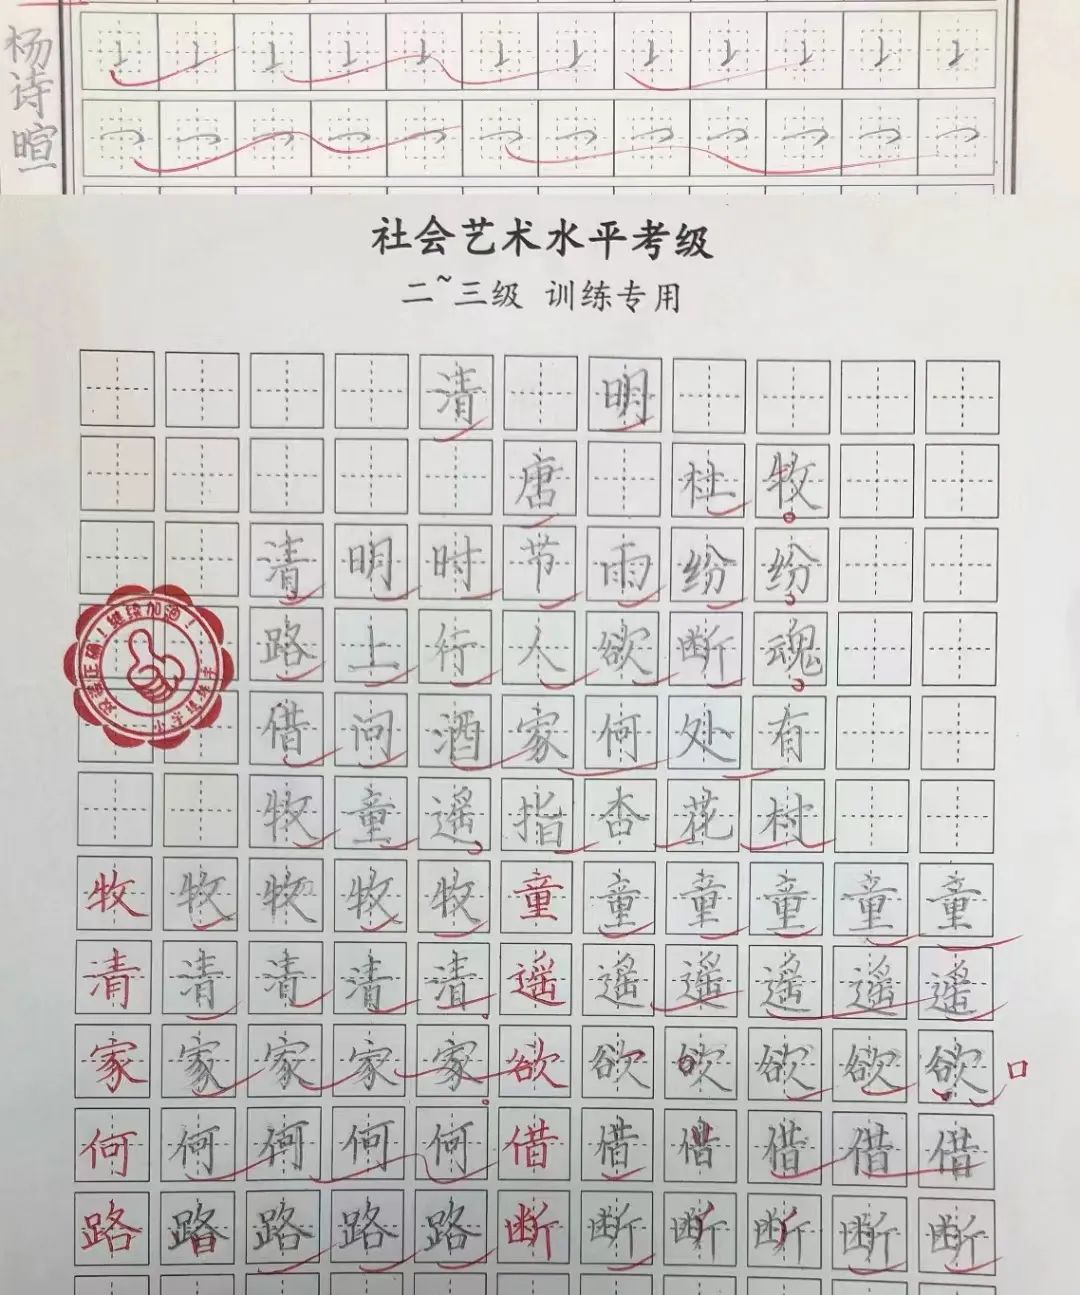 杨诗暄
社会艺术水平考级
二~三级 训练专用
清明
唐 杜牧
清明时节雨纷纷
路上行人欲断魂
借问酒家何处有
牧童遥指杏花村
牧牧牧牧牧童童童童童童
清清清清清遥遥遥遥遥遥
家家家家家欲欲欲欲欲欲
何何何何何借借借借借借
路路路路路断断断断断断